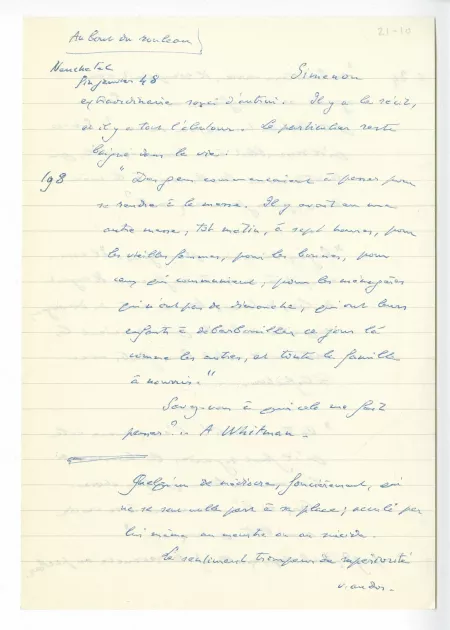 21-10
Au bout du rouleau
Neuchatel
fin janvier 48
Simenon
extraordinaire Il y a le récit,
et il y a tout l'alentour. Le particulier reste
baigné dans la vie.
198
"Des gens commençaient à passer pour
se rendre à la messe. Il y avait eu une
autre messe, tôt matin, à sept heures, pour
les vieilles femmes, pour les bonnes, pour
ceux qui communient, pour les ménagères
qui n'ont pas de dimanche, qui ont leurs
enfants à débarbouiller ce jour là
comme les autres, et toute la famille
à nourrir."
Savez-vous à qui cela me fait
penser? A Whitman.
Quelqu'un de médiocre, foncièrement, qui
ne se sent nulle part à sa place; acculé par
lui même au meurtre ou au suicide.
Le sentiment trompeur de supériorité
v. au dos.